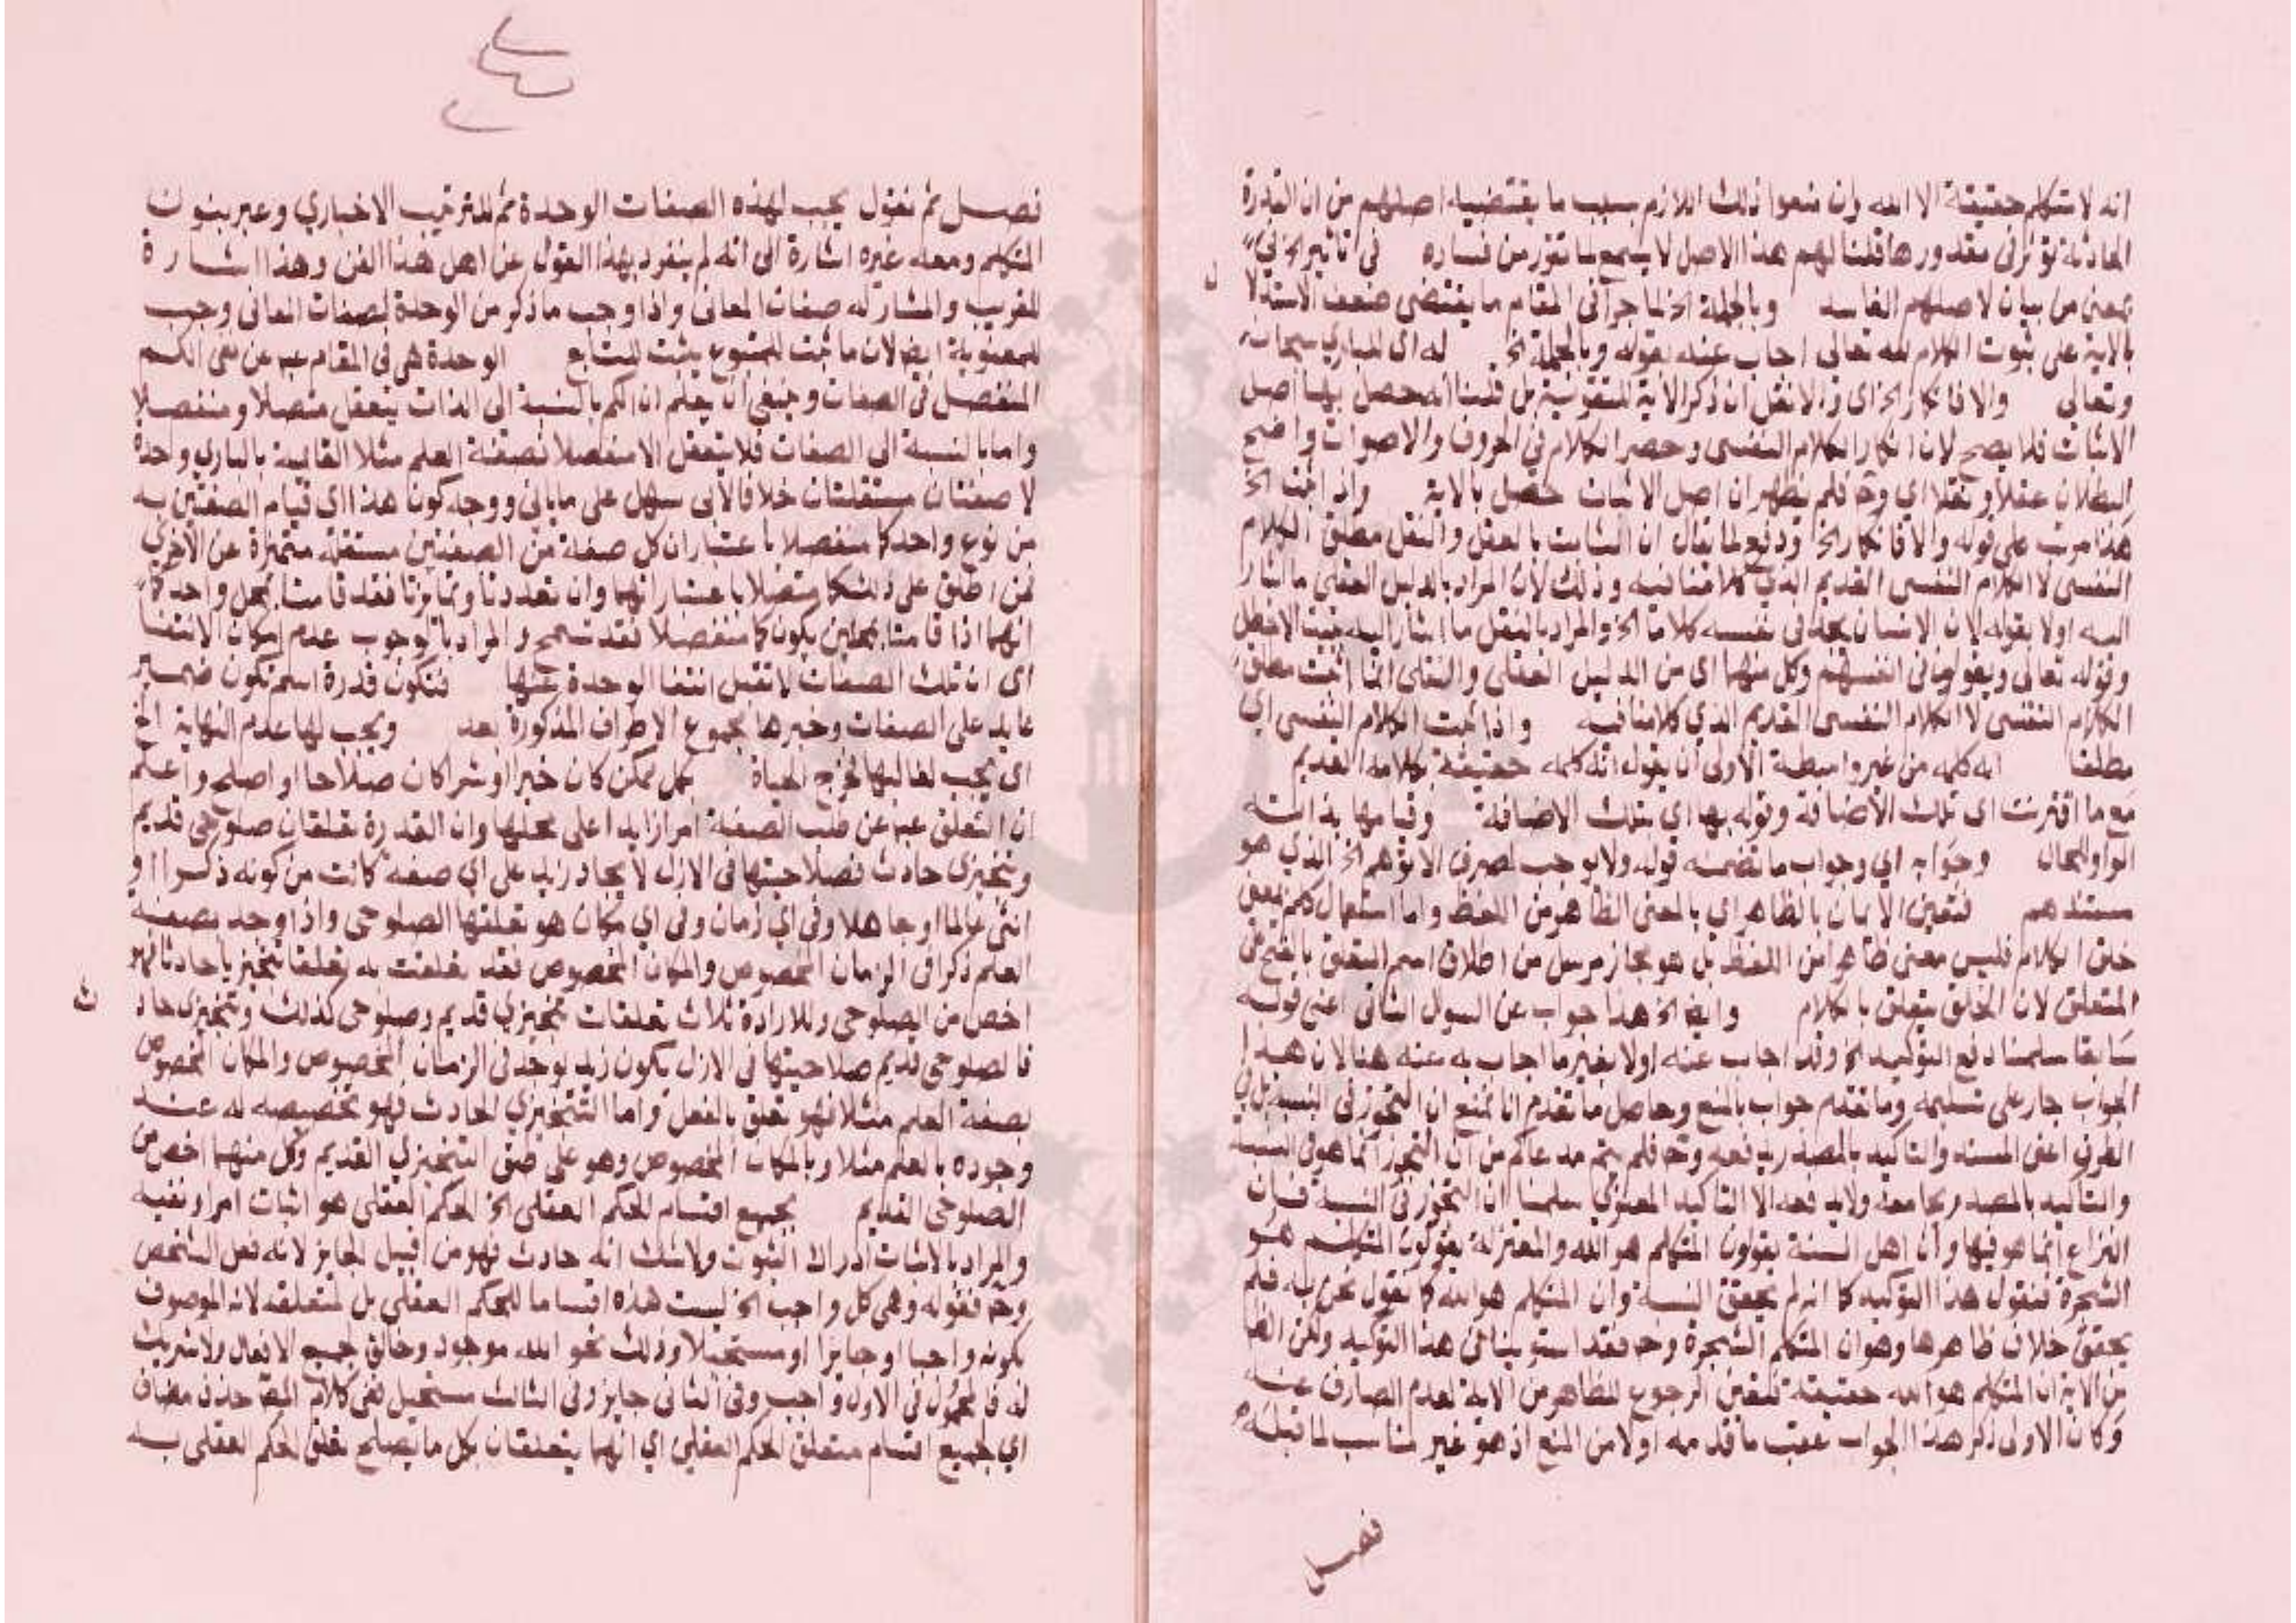 انه لا متكلم حقيقة الا الله وان منعوا ذلك اللازم بسبب ما يقتضيه اصلهم من ان القدرة
الحادثة تؤثر في مقدورها قلنا لهم هذا الاصل لا يسمع لما تقرر من فساده في تاثير الخ في
بمعنى من بيان لاصلهم الفاسد وبالجملة الخ لما جرا في المقام ما يقتضي ضعف الاستدلا ل
بالاية على ثبوت الكلام لله تعالى اجاب عنه بقوله وبالجملة الخ له اي للباري سبحانه
وتعالى والا فانكار الخ اي والا نقل ان ذكر الاية للتقوية بل قلنا انه حصل بها اصل
الاثبات فلا يصح لان انكار الكلام النفسي وحصر الكلام في الحروف والاصوات واضح
البطلان عقلا ونقلا اي وح فلم يظهر ان اصل الاثبات حصل بالاية واذ اثبت الخ
هذا مرتب على قوله والا فانكار الخ ودفع لما يقال ان الثابت بالعقل والنقل مطلق الكلام
النفسي لا الكلام النفسي القديم الذي كلامنا فيه وذلك لان المراد بالدليل العقلي ما اشار
اليه اولا بقوله لان الانسان يجد في نفسه كلاما الخ والمراد بالنقل ما اشار اليه ببيت الاخطل
وقوله تعالى ويقولون في انفسهم وكل منهما اي من الدليل العقلي والنقلي انما اثبت مطلق
الكلام النفسي لا الكلام النفسي القديم الذي كلامنا فيه واذا ثبت الكلام النفسي اي
مطلقا انه كلمه من غير واسطة الاولى ان يقول انه كلمه حقيقة بكلامه القديم
مع ما اقترنت اي تلك الاضافة وقوله بها اي بتلك الاضافة وقيامها بذاته
الواو للحال وجوابه اي وجواب ما تضمنه قوله ولا يوجب لصرف الا توهم الخ الذي هو
مستندهم فتعين الايمان بالظاهر اي بالمعنى الظاهر من اللفظ واما استعمال كلم بمعنى
خلق الكلام فليس معنى ظاهرا من اللفظ بل هو مجاز مرسل من اطلاق اسم المتعلق بالفتح على
المتعلق لان الخالق يتعلق بالكلام وايضا الخ هذا جواب عن السوال الثاني اعني قوله
سابقا سلمنا دفع التوكيد الخ وقد اجاب عنه اولا بغير ما اجاب به عنه هنا لان هذا
الجواب جار على تسليمه وما تقدم جواب بالمنع وحاصل ما تقدم انا نمنع ان التجوز في النسبة بل في
الطرف اعني المسند والتاكيد بالمصدر يدفعه وح فلم يتم مدعاكم من ان التجوز انما هو في النسبة
والتاكيد بالمصدر يجامعه ولا يدفعه الا التاكيد المعنوي سلمنا ان التجوز في النسبة فان
النزاع انما هو فيها وان اهل السنة يقولون المتكلم هو الله والمعتزلة يقولون المتكلم هو
الشجرة فنقول هذا التوكيد كما انه لم يحقق النسبة وان المتكلم هو الله كما نقول نحن به فلم
يحقق خلاف ظاهرها وهو ان المتكلم الشجرة وح فقد استوينا في هذا التوكيد ولكن الظا
من الاية ان المتكلم هو الله حقيقة فتعين الرجوع للظاهر من الاية لعدم الصارف عنه
وكان الاولى ذكر هذا الجواب عقب ما قدمه اولا من المنع اذ هو غير مناسب لما قبله
فصل
فصل ثم نقول يجب لهذه الصفات الوحدة ثم للترتيب الاخباري وعبر بنون
المتكلم ومعه غيره اشارة الى انه لم ينفرد بهذا القول عن اهل هذا الفن وهذا اشارة
للقريب والمشار له صفات المعاني واذا وجب ما ذكر من الوحدة لصفات المعاني وجب
للمعنوية ايضا لان ما ثبت للمتبوع يثبت للتابع الوحدة هي في المقام عبـ عن نفي الكم
المنفصل في الصفات وينبغي ان يعلم ان الكم بالنسبة الى الذات يتعقل متصلا ومنفصلا
واما بالنسبة الى الصفات فلا يتعقل الا منفصلا فصفة العلم مثلا القائمة بالباري واحدة
لا صفتان مستقلتان خلافا لابي سهل على ما ياتي ووجه كون هذا اي قيام الصفتين به
من نوع واحد كما منفصلا باعتبار ان كل صفة من الصفتين مستقلة متميزة عن الاخرى
فمن اطلق على ذلك كما متصلا باعتبار انهما وان تعددتا وتمايزتا فقد قامتا بمحل واحد كما
انهما اذا قامتا بمحلين يكون كما منفصلا فقد تسمح والمراد بالوجوب عدم امكان الانتفا
اي ان تلك الصفات لا تقبل انتفا الوحدة عنها فتكون قدرة اسم تكون ضمير
عايد على الصفات وخبرها مجموع الاطراف المذكورة بعد ويجب لها عدم النهاية الخ
اي يجب لغالبها لتخرج الحياة كل ممكن كان خيرا او شرا كان صلاحا او اصلح واعلم
ان التعلق عبـ عن طلب الصفة امرا زايدا على محلها وان القدرة تعلقان صلوحي قديم
وتنجيزي حادث فصلاحيتها في الازل لايجاد زيد على اي صفة كانت من كونه ذكرا او
انثى عالما او جاهلا وفي اي زمان وفي اي مكان هو تعلقها الصلوحي واذا وجد بصفة
العلم ذكرا في الزمان المخصوص والمكان المخصوص فقد تعلقت به تعلقا تنجيزيا حادثا فهو
اخص من الصلوحي وللارادة ثلاث تعلقات تنجيزي قديم وصلوحي كذلك وتنجيزي حاد ث
فالصلوحي قديم صلاحيتها في الازل بكون زيد يوجد في الزمان المخصوص والمكان المخصوص
بصفة العلم مثلا فهو تعلق بالفعل واما التنجيزي الحادث فهو تخصيصه له عند
وجوده بالعلم مثلا وبالمكان المخصوص وهو على طبق التنجيزي القديم وكل منهما اخص من
الصلوحي القديم بجميع اقسام الحكم العقلي الخ الحكم العقلي هو اثبات امر او نفيه
والمراد بالاثبات ادراك الثبوت ولا شك انه حادث فهو من قبيل الجايز لانه فعل الشخص
وح فقوله وهي كل واجب الخ ليست هذه اقساما للحكم العقلي بل لمتعلقه لانه الموصوف
بكونه واجبا او جايزا او مستحيلا وذلك نحو الله موجود وخالق جميع الافعال ولا شريك
له فالمحمول في الاول واجب وفي الثاني جايز وفي الثالث مستحيل ففي كلام المص حذف مضاف
اي لجميع اقسام متعلق الحكم العقلي اي انهما يتعلقان بكل ما يصلح تعلق الحكم العقلي به